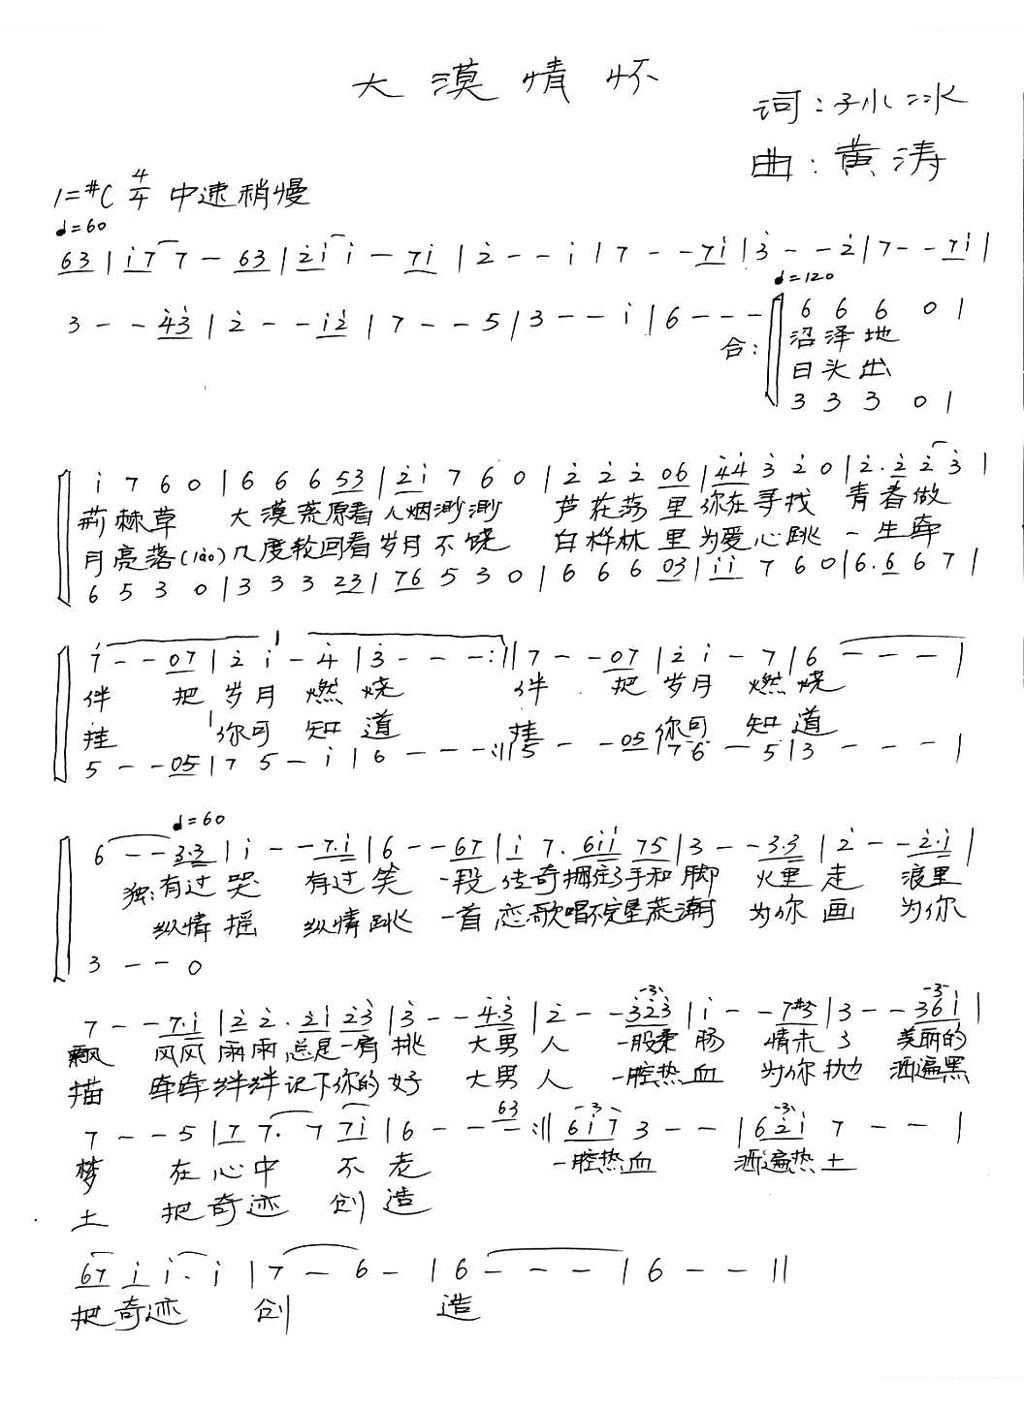 大漠情怀
词:孙小冰
曲:黄涛
1=#C 4/4 中速稍慢
♩=60
63 | i7 7 - 63 | 2̇i i - 7i | 2̇ - - i | 7 - - 7i | 3̇ - - 2̇ | 7 - - 7i |
♩=120
3 - - 4̇3̇ | 2̇ - - i2̇ | 7 - - 5 | 3 - - i | 6 - - - 6 6 6 0 |
合: 沼泽地
日头出
3 3 3 0 |
i 7 6 0 | 6 6 6 53 | 2̇i 7 6 0 | 2̇ 2̇ 2̇ 06 | 4̇4̇ 3̇ 2̇ 0 | 2̇. 2̇ 2̇ 3̇ |
荊棘草 大漠荒原看人烟渺渺 芦花荡里你在寻找 青春做
月亮落(lào) 几度轮回看岁月不饶 白桦林里为爱心跳 一生牵
6 5 3 0 | 3 3 3 23 | 76 5 3 0 | 6 6 6 03 | ii 7 6 0 | 6. 6 6 7 |
7 - - 07 | 2̇ i - 4̇ | 3̇ - - - :|| 7 - - 07 | 2̇ i - 7 | 6 - - - |
伴 把岁月燃烧 伴 把岁月燃烧
挂 你可知道 挂 你可知道
5 - - 05 | 7 5 - i | 6 - - - :|| 5 - - 05 | 7 6 - 5 | 3 - - - |
♩=60
6 - - 3.3 | i - - 7.i | 6 - - 67 | i 7. 6ii 75 | 3 - - 3.3 | 2̇ - - 2̇.i |
独:有过哭 有过笑 一段传奇拥抱了手和脚 火里走 浪里
纵情摇 纵情跳 一首恋歌唱不完星荒潮 为你画 为你
3 - - 0
7 - - 7.i | 2̇2̇. 2̇i 2̇3̇ | 3̇ - - 4̇.3̇ | 2̇ - - 3̇2̇3̇ | i - - 7#5 | 3 - - 36i |
飘 风风雨雨总是一肩挑 大男人 一股柔肠 情未了 美丽的
描 牵牵绊绊记下你的好 大男人 一腔热血 为你抛 洒遍黑
7 - - 5 | 7 7. 7 7i | 6 - - 63 - :|| 6i7 3 - - | 62̇i 7 - - |
梦 在心中不老 一腔热血 洒遍热土
土 把奇迹创造
67 i i. i | 7 - 6 - | 6 - - - | 6 - - ||
把奇迹 创 造